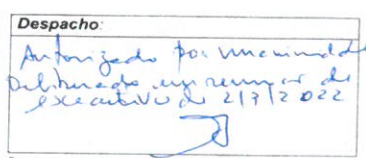 Despacho:
Autorizado por unanimidade
Deliberado em reunião de
executivo de 2/3/2022